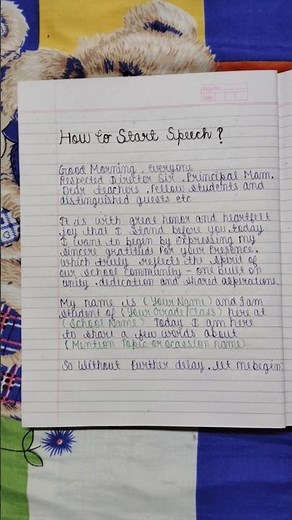 How to Start Speech?
Good Morning, Everyone
Respected Director Sir, Principal Mam,
Dear teachers, fellow students and
distinguished guests etc
It is with great honor and heartfelt
joy that I stand before you today
I want to begin by expressing my
sincere gratitude for your presence,
which truly reflects the spirit of
our school community - one built on
unity, dedication and shared aspirations.
My name is (Your Name) and I am
student of (Your Grade/Class) here at
(School Name) Today I am here
to share a few words about
(Mention Topic or occassion name)
So without further delay, let me begin